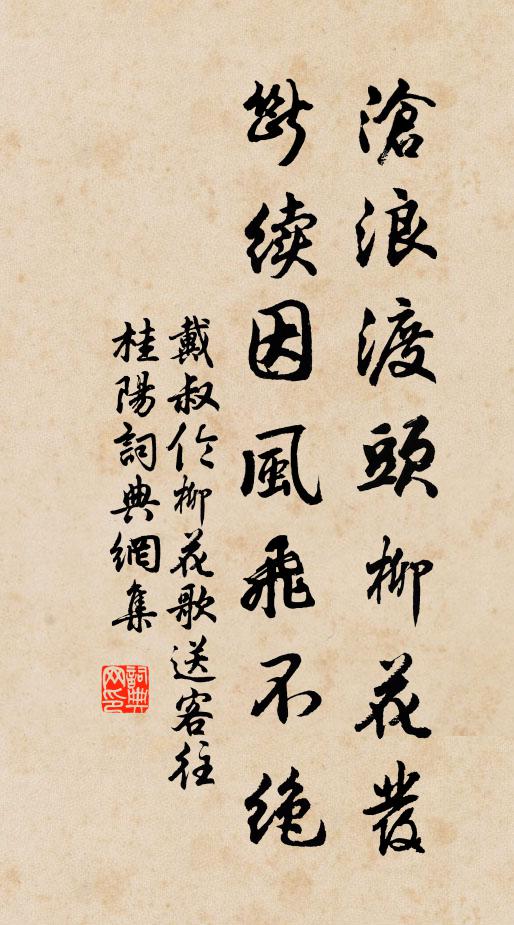 滄浪渡頭柳花發
斷续因風飛不绝
戴叔伦柳花歌送客往
桂陽詞典網集
詞典网印